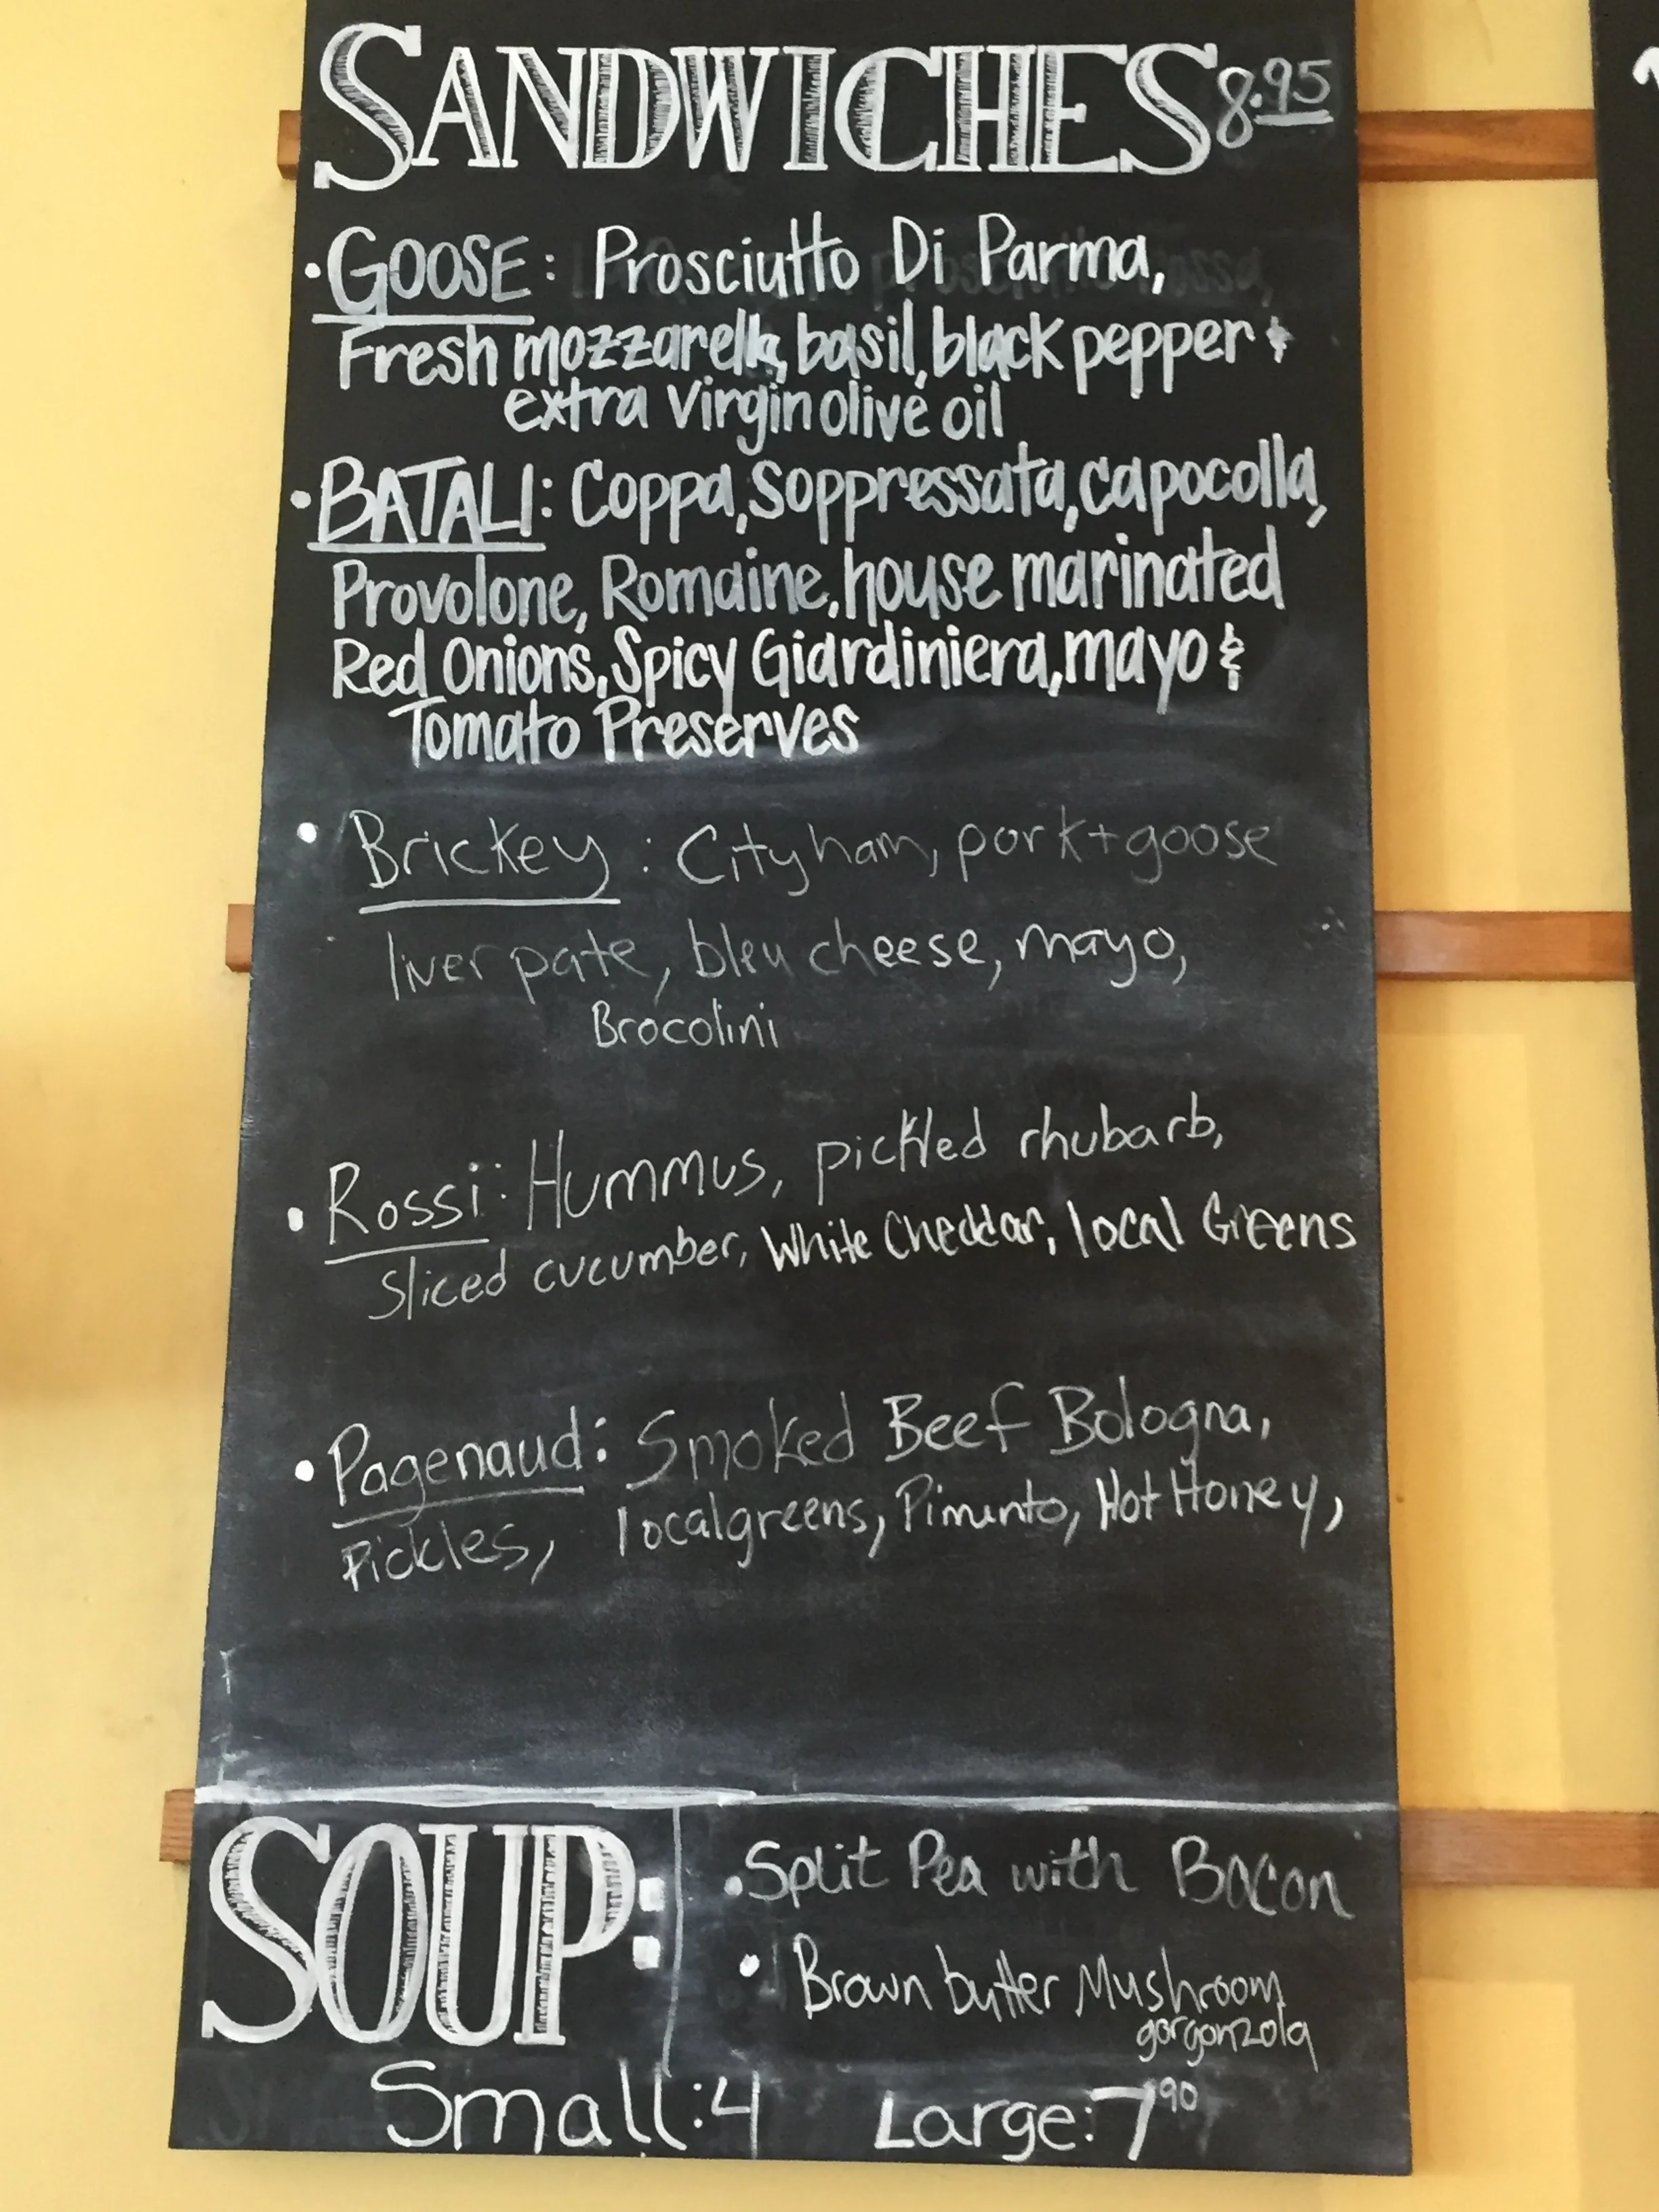 SANDWICHES 8.95
• GOOSE: Prosciutto Di Parma,
Fresh mozzarella, basil, black pepper &
extra virgin olive oil
• BATALI: Coppa, Soppressata, capocolla,
Provolone, Romaine, house marinated
Red Onions, Spicy Giardiniera, mayo &
Tomato Preserves
• Brickey: City ham, pork + goose
liver pate, bleu cheese, mayo,
Brocolini
• Rossi: Hummus, pickled rhubarb,
Sliced cucumber, White Cheddar, local Greens
• Pagenaud: Smoked Beef Bologna,
Pickles, local greens, Pimento, Hot Honey,
SOUP:
• Split Pea with Bacon
• Brown butter Mushroom
gorgonzola
Small: 4 Large: 7 90